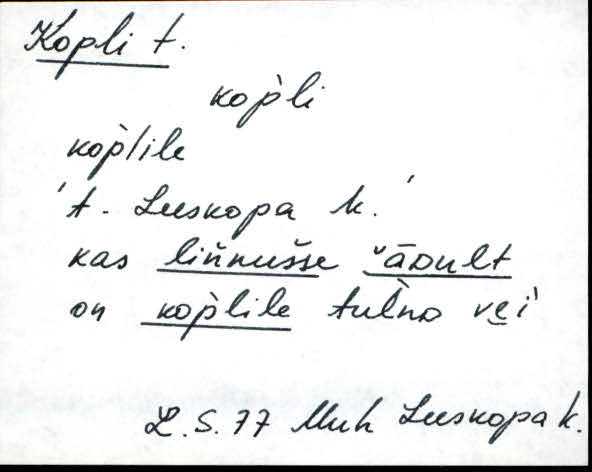 Kopli t.
kop̀li
kop̀lile
't. Leeskopa k.'
kas liǹnušše ˇāᴅult
on kop̀lile tulnᴅ ve̮i
L.S. 77 Muh Leeskopa k.